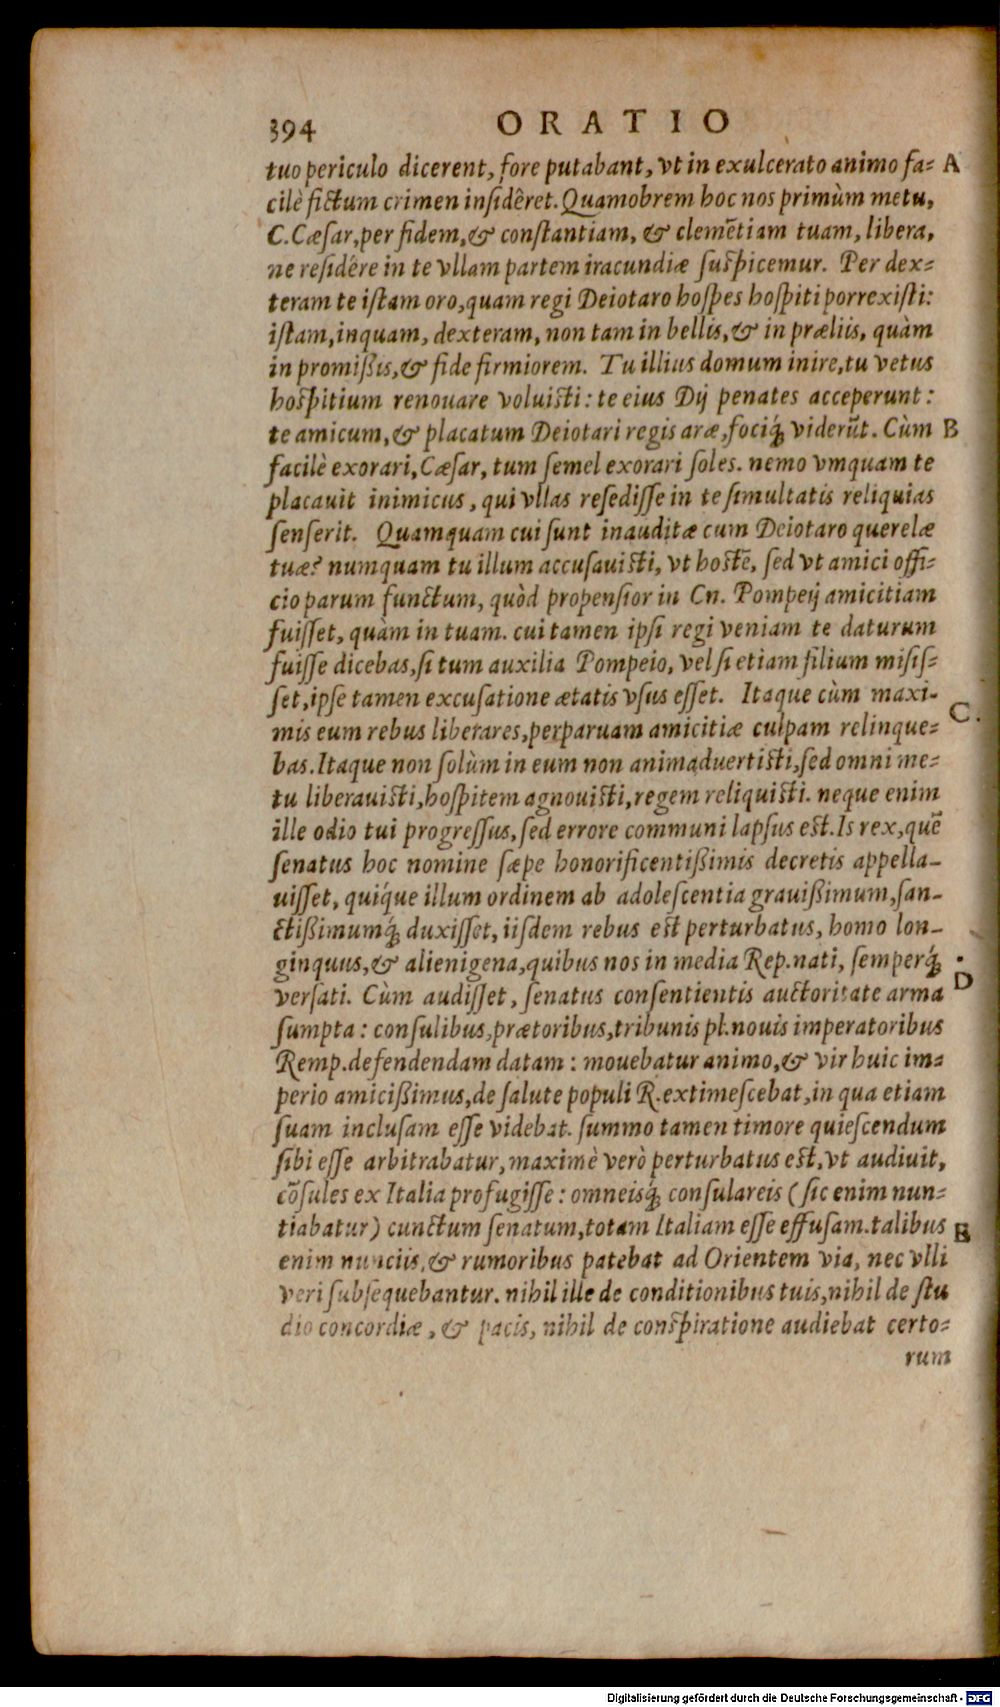 394 ORATIO
tuo periculo dicerent, fore putabant, vt in exulcerato animo fa- A
cilè fictum crimen insidêret. Quamobrem hoc nos primùm metu,
C. Cæsar, per fidem, & constantiam, & clemẽtiam tuam, libera,
ne residére in te vllam partem iracundiæ suspicemur. Per dex-
teram te istam oro, quam regi Deiotaro hospes hospiti porrexisti:
istam, inquam, dexteram, non tam in bellis, & in præliis, quàm
in promißis, & fide firmiorem. Tu illius domum inire, tu vetus
hospitium renouare voluisti: te eius Dij penates acceperunt:
te amicum, & placatum Deiotari regis aræ, fociq́; viderũt. Cùm B
facilè exorari, Cæsar, tum semel exorari soles. nemo vmquam te
placauit inimicus, qui vllas resedisse in te simultatis reliquias
senserit. Quamquam cui sunt inauditæ cum Deiotaro querelæ
tuæ? numquam tu illum accusauisti, vt hostẽ, sed vt amici offi-
cio parum functum, quòd propensior in Cn. Pompeij amicitiam
fuisset, quàm in tuam. cui tamen ipsi regi veniam te daturum
fuisse dicebas, si tum auxilia Pompeio, vel si etiam filium misis-
set, ipse tamen excusatione ætatis vsus esset. Itaque cùm maxi-
mis eum rebus liberares, perparuam amicitiæ culpam relinque- C.
bas. Itaque non solùm in eum non animaduertisti, sed omni me-
tu liberauisti, hospitem agnouisti, regem reliquisti. neque enim
ille odio tui progressus, sed errore communi lapsus est. Is rex, quẽ
senatus hoc nomine sæpe honorificentißimis decretis appella-
uisset, quiq́ue illum ordinem ab adolescentia grauißimum, san-
ctißimumq́; duxisset, iisdem rebus est perturbatus, homo lon-
ginquus, & alienigena, quibus nos in media Rep. nati, semperq́;
versati. Cùm audisset, senatus consentientis auctoritate arma D
sumpta: consulibus, prætoribus, tribunis pl. nouis imperatoribus
Remp. defendendam datam: mouebatur animo, & vir huic im-
perio amicißimus, de salute populi R. extimescebat, in qua etiam
suam inclusam esse videbat. summo tamen timore quiescendum
sibi esse arbitrabatur, maximè verò perturbatus est, vt audiuit,
cõsules ex Italia profugisse: omneisq́; consulareis (sic enim nun-
tiabatur) cunctum senatum, totam Italiam esse effusam. talibus E
enim nunciis, & rumoribus patebat ad Orientem via, nec vlli
veri subsequebantur. nihil ille de conditionibus tuis, nihil de stu
dio concordiæ, & pacis, nihil de conspiratione audiebat certo-
rum
Digitalisierung gefördert durch die Deutsche Forschungsgemeinschaft - DFG